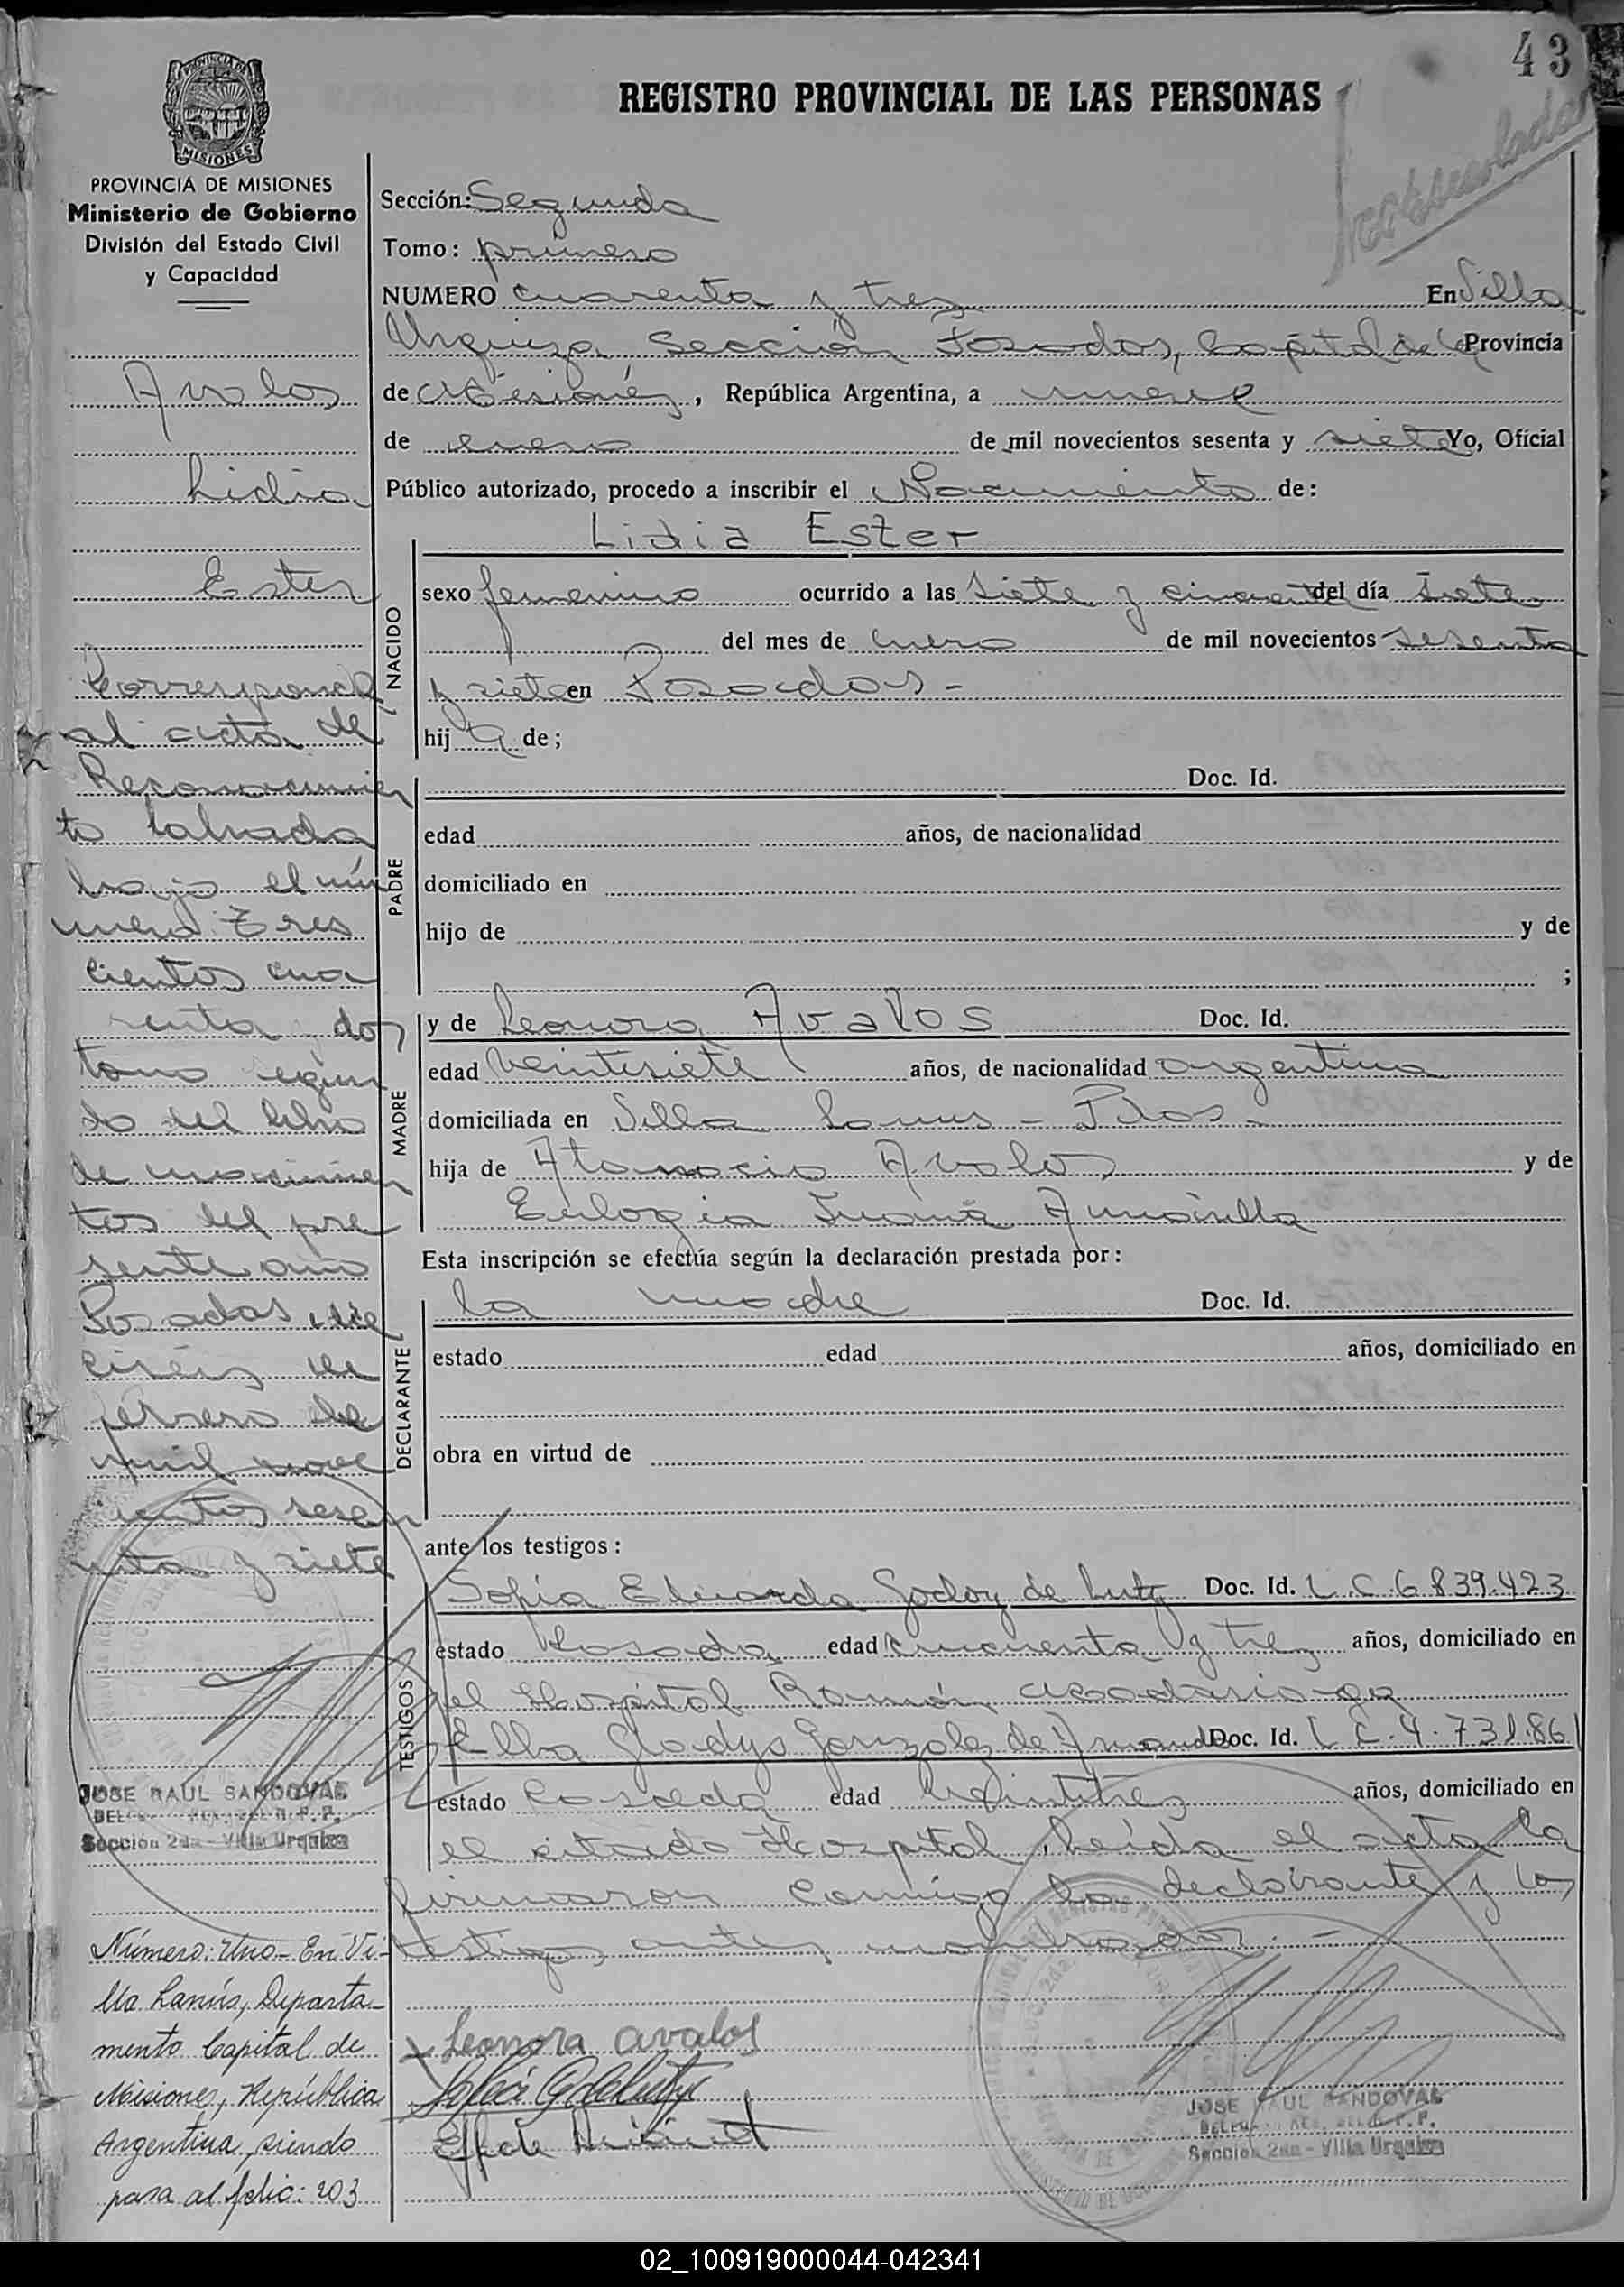 43
REGISTRO PROVINCIAL DE LAS PERSONAS
PROVINCIA DE MISIONES
Ministerio de Gobierno
División del Estado Civil
y Capacidad
Sección: Segunda
Tomo: primero
NUMERO cuarenta y tres En Villa
Urquiza Sección Posadas, Capital de la Provincia
de Misiones, República Argentina, a nueve
de enero de mil novecientos sesenta y siete Yo, Oficial
Público autorizado, procedo a inscribir el Nacimiento de:
Lidia Ester
NACIDO
sexo femenino ocurrido a las siete y cincuenta del día siete
del mes de enero de mil novecientos sesenta
y siete en Posadas -
hij a de;
PADRE
Doc. Id.
edad años, de nacionalidad
domiciliado en
hijo de y de
;
MADRE
y de Leonora Avalos Doc. Id.
edad veintisiete años, de nacionalidad argentina
domiciliada en Villa Lanus - Pdas -
hija de Atanacio Avalos y de
Eulogia Juana Amarilla
Esta inscripción se efectúa según la declaración prestada por:
DECLARANTE
la madre Doc. Id.
estado edad años, domiciliado en
obra en virtud de
ante los testigos:
TESTIGOS
Sofia Eduarda Godoy de Lutz Doc. Id. L C 6839.423
estado Casada edad cincuenta y tres años, domiciliado en
el Hospital Ramón Madariaga
Elba Gladys Gonzalez de Doc. Id. L C. 4.731.861
estado Casada edad veintitres años, domiciliado en
el citado Hospital, Leída el acta la
firmaron conmigo la declarante y los
testigos antes nombrados. -
Leonora avalos
JOSE RAUL SANDOVAL
Sección 2da - Villa Urquiza
Avalos
Lidia
Ester
Corresponde
al acta de
Reconocimien
to labrada
bajo el nú
mero tres
cientos cua
renta dos
tomo segun
do del libro
de nacimien
tos del pre
sente año
Posadas, die
ciséis de
febrero de
mil nove
cientos sesen
ta y siete
JOSE RAUL SANDOVAL
Sección 2da - Villa Urquiza
Número: Uno - En Vi-
lla Lanús, Departa-
mento Capital de
Misiones, República
Argentina, siendo
pasa al folio: 203
02_100919000044-042341